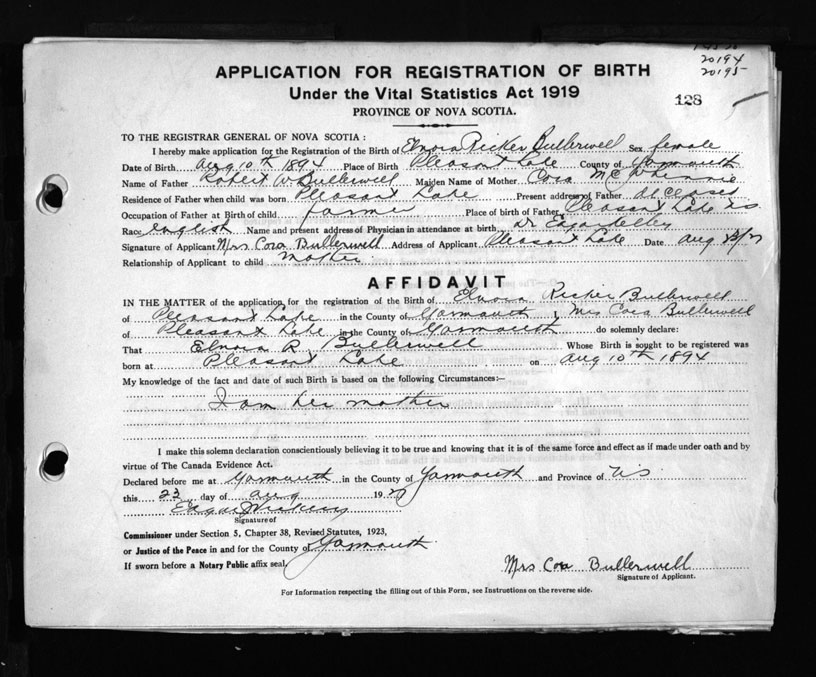 20194
20195
APPLICATION FOR REGISTRATION OF BIRTH
Under the Vital Statistics Act 1919
128
PROVINCE OF NOVA SCOTIA.
TO THE REGISTRAR GENERAL OF NOVA SCOTIA:
I hereby make application for the Registration of the Birth of Elnora Ricker Bullerwell Sex female
Date of Birth Aug 10th 1894 Place of Birth Pleasant Lake County of Yarmouth
Name of Father Robert W Bullerwell Maiden Name of Mother Cora
Residence of Father when child was born Pleasant Lake Present address of Father deceased
Occupation of Father at Birth of child farmer Place of birth of Father Pleasant Lake NS
Race English Name and present address of Physician in attendance at birth Dr
Signature of Applicant Mrs Cora Bullerwell Address of Applicant Pleasant Lake Date Aug
Relationship of Applicant to child mother
AFFIDAVIT
IN THE MATTER of the application for the registration of the Birth of Elnora Ricker Bullerwell
of Pleasant Lake in the County of Yarmouth I, Mrs Cora Bullerwell
of Pleasant Lake in the County of Yarmouth do solemnly declare:
That Elnora R Bullerwell Whose Birth is sought to be registered was
born at Pleasant Lake on Aug 10th 1894
My knowledge of the fact and date of such Birth is based on the following Circumstances:—
I am her mother
I make this solemn declaration conscientiously believing it to be true and knowing that it is of the same force and effect as if made under oath and by
virtue of The Canada Evidence Act.
Declared before me at Yarmouth in the County of Yarmouth and Province of NS
this 23 day of Aug 192
Signature of
Commissioner under Section 5, Chapter 38, Revised Statutes, 1923,
or Justice of the Peace in and for the County of Yarmouth
If sworn before a Notary Public affix seal.
Mrs Cora Bullerwell
Signature of Applicant.
For Information respecting the filling out of this Form, see Instructions on the reverse side.